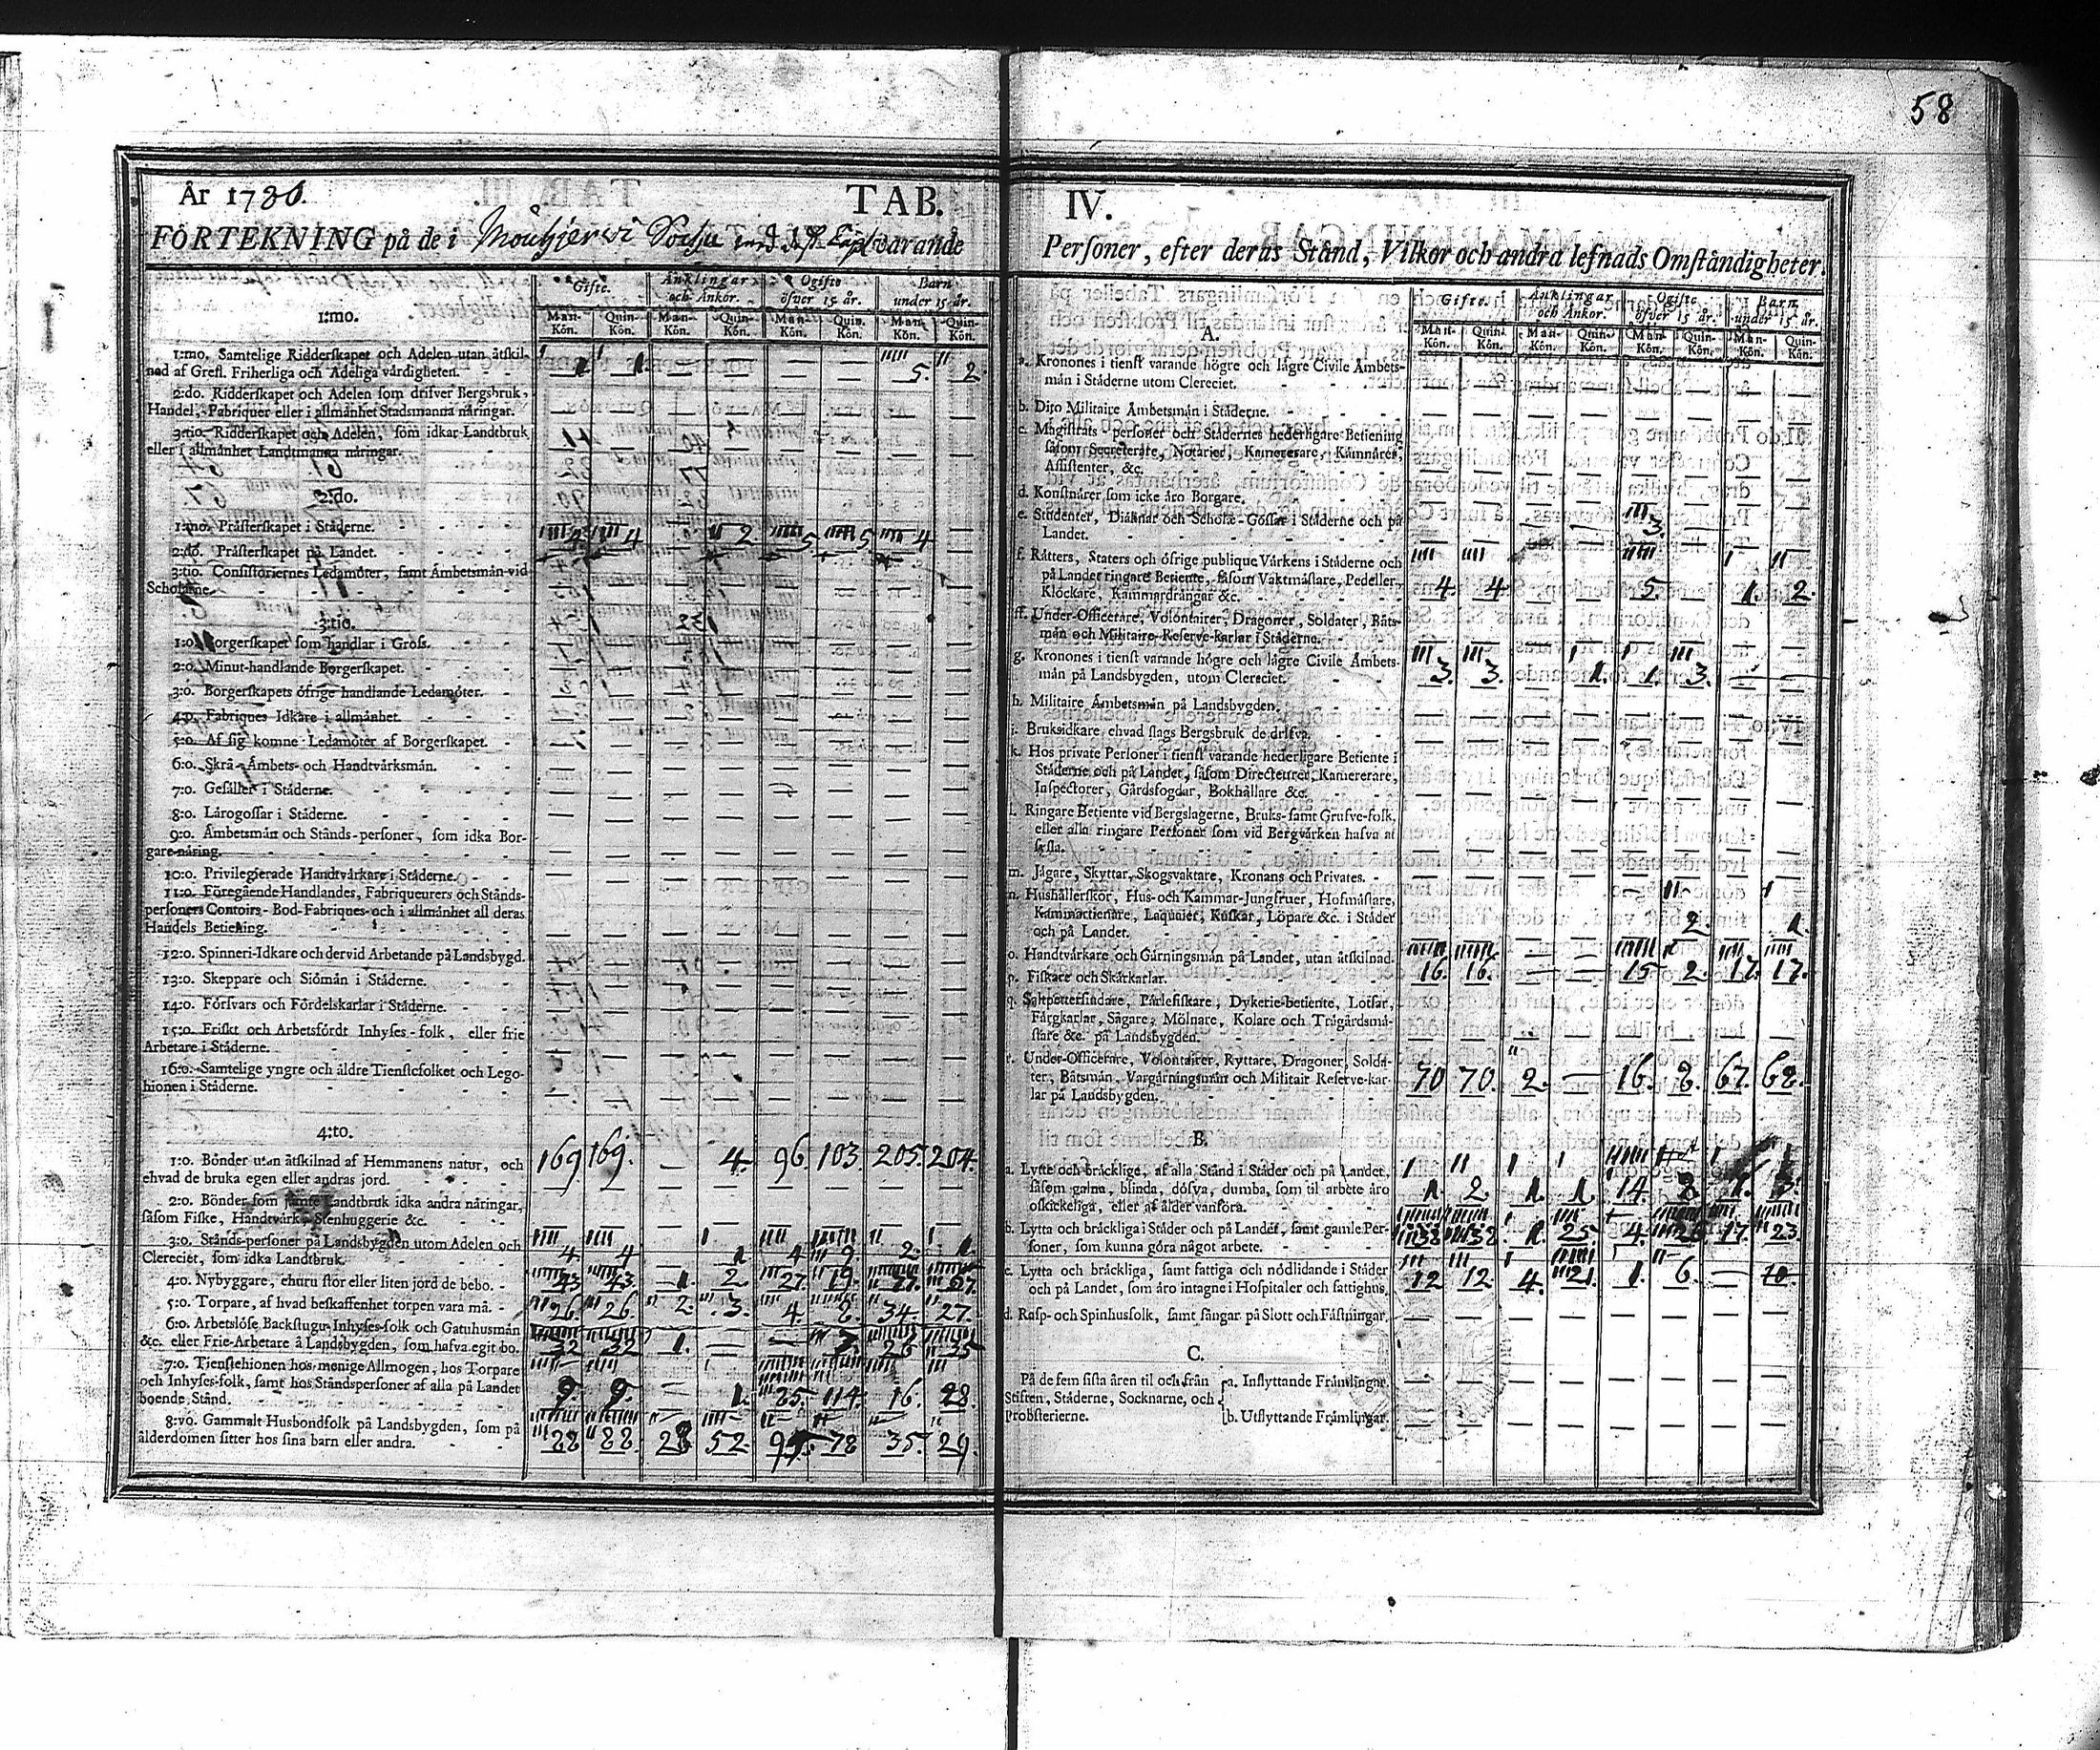 58
År 1786. TAB. IV.
FÖRTEKNING på de i Mouhjerwi Sockn med varande Personer, efter deras Stånd, Vilkor och andra lefnads Omståndigheter.
Gifte. Ånklingar och Ånkor. Ogifte öfver 15 år. Barn under 15 år.
1:mo. Man-Kön. Quin-Kön. Man-Kön. Quin-Kön. Man-Kön. Quin-Kön. Man-Kön. Quin-Kön.
1:mo. Samtelige Ridderskapet och Adelen utan åtskil-
nad af Grefl. Friherliga och Adeliga vårdigheten. 1 1 — — — — 5. 2.
2:do. Ridderskapet och Adelen som drifver Bergsbruk,
Handel, Fabriquer eller i allmånhet Stadsmanna nåringar. — — — — — — — —
3:tio. Ridderskapet och Adelen, som idkar Landtbruk
eller i allmånhet Landtmanna nåringar. — — — — — — — —
2:do.
1:mo. Pråsterskapet i Ståderne.
2:do. Pråsterskapet på Landet. 4 4 — 2 5 5 4 —
3:tio. Consistoriernes Ledamöter, samt Åmbetsmån vid
Scholarne. — — — — — — — —
3:tio.
1:o. Borgerskapet som handlar i Gross. — — — — — — — —
2:o. Minut-handlande Borgerskapet. — — — — — — — —
3:o. Borgerskapets öfrige handlande Ledamöter. — — — — — — — —
4:o. Fabriques Idkare i allmånhet. — — — — — — — —
5:o. Af sig komne Ledamöter af Borgerskapet. — — — — — — — —
6:o. Skrå-Åmbets- och Handtvårksmån. — — — — — — — —
7:o. Gesåller i Ståderne. — — — — — — — —
8:o. Lårogossar i Ståderne. — — — — — — — —
9:o. Åmbetsmån och Stånds-personer, som idka Bor-
gare nåring. — — — — — — — —
10:o. Privilegierade Handtvårkare i Ståderne. — — — — — — — —
11:o. Föregående Handlandes, Fabriqueurers och Stånds-
personers Contoirs- Bod-Fabriques- och i allmånhet all deras
Handels Betiening. — — — — — — — —
12:o. Spinneri-Idkare och dervid Arbetande på Landsbygd. — — — — — — — —
13:o. Skeppare och Siömån i Ståderne. — — — — — — — —
14:o. Försvars och Fördelskarlar i Ståderne. — — — — — — — —
15:o. Friskt och Arbetsfördt Inhyses-folk, eller frie
Arbetare i Ståderne. — — — — — — — —
16:o. Samtelige yngre och åldre Tienstefolket och Lego-
hionen i Ståderne. — — — — — — — —
4:to.
1:o. Bönder utan åtskilnad af Hemmanens natur, och
ehvad de bruka egen eller andras jord. 169 169. — 4. 96. 103 205. 204.
2:o. Bönder som jåmte Landtbruk idka andra nåringar,
såsom Fiske, Handtvårk, Stenhuggerie &c. — — — — — — — —
3:o. Stånds-personer på Landsbygden utom Adelen och
Clereciet, som idka Landtbruk. 4 4 — 1 4 9. 2. 1.
4:o. Nybyggare, ehuru stor eller liten jord de bebo. 43 43. 1. 2 27. 19. 27. 27.
5:o. Torpare, af hvad beskaffenhet torpen vara må. 26. 26 2. 3. 4. 8. 34. 27.
6:o. Arbetslöse Backstugu- Inhyses-folk och Gatuhusmån
&c. eller Frie-Arbetare å Landsbygden, som hafva egit bo. 32 32 1. — — 26 35
7:o. Tienstehionen hos menige Allmogen, hos Torpare
och Inhyses-folk, samt hos Ståndspersoner af alla på Landet
boende Stånd. 9. 9. — 1. 25. 114. 16. 28.
8:vo. Gammalt Husbondfolk på Landsbygden, som på
ålderdomen sitter hos sina barn eller andra. 88 88. 28 52. 78 35. 29.
Gifte. Ånklingar och Ånkor. Ogifte öfver 15 år. Barn under 15 år.
A. Man-Kön. Quin-Kön. Man-Kön. Quin-Kön. Man-Kön. Quin-Kön. Man-Kön. Quin-Kön.
a. Kronones i tienst varande högre och lågre Civile Åmbets-
mån i Ståderne utom Clereciet. — — — — — — — —
b. Dito Militaire Åmbetsmån i Ståderne. — — — — — — — —
c. Magistrats personer och Stådernes hederligare Betiening
såsom Secreterare, Notarier, Kamererare, Kåmnårer,
Assistenter, &c. — — — — — — — —
d. Konstnårer som icke åro Borgare. — — — — — — — —
e. Studenter, Diåknar och Scholæ-Gossar i Ståderne och på
Landet. — — — — 3. — — —
f. Råtters, Staters och öfrige publique Vårkens i Ståderne och
på Landet ringare Betiente, såsom Vaktmåstare, Pedeller,
Klockare, Kammardrångar &c. 4. 4 — — 5. — 1. 2.
ff. Under-Officerare, Volontairer, Dragoner, Soldater, Båts-
mån och Militaire-Reserve-karlar i Ståderne. — — — — — — — —
g. Kronones i tienst varande högre och lågre Civile Åmbets-
mån på Landsbygden, utom Clereciet. 3. 3. — 1. 1. 3. — —
h. Militaire Åmbetsmån på Landsbygden. — — — — — — — —
i. Bruksidkare ehvad slags Bergsbruk de drifva. — — — — — — — —
k. Hos private Personer i tienst varande hederligare Betiente i
Ståderne och på Landet, såsom Directeurer, Kamererare,
Inspectorer, Gårdsfogdar, Bokhållare &c. — — — — — — — —
l. Ringare Betiente vid Bergslagerne, Bruks- samt Grufve-folk,
eller alla ringare Personer som vid Bergvårken hafva at
sysla. — — — — — — — —
m. Jågare, Skyttar, Skogsvaktare, Kronans och Privates. — — — — — — — —
n. Hushållerskor, Hus- och Kammar-Jungfruer, Hofmåstare,
Kammartienare, Laquaier, Kuskar, Löpare &c. i Ståder
och på Landet. — — — — — 2. — 1.
o. Handtvårkare och Gårningsmån på Landet, utan åtskilnad. 16. 16. — — 15 2. 17. 17.
p. Fiskare och Skårkarlar. — —
q. Salpetersiudare, Pårlefiskare, Dykerie-betiente, Lotsar,
Fårgkarlar, Sågare, Mölnare, Kolare och Trågårdsmå-
stare &c. på Landsbygden. — — — — — — — —
r. Under-Officerare, Volontairer, Ryttare, Dragoner, Solda-
ter, Båtsmån, Vargårningsmån och Militair Reserve-kar-
lar på Landsbygden. 70 70. 2. — 16. 8. 67. 68.
B.
a. Lytte och bråcklige, af alla Stånd i Ståder och på Landet,
såsom galna, blinda, döfva, dumba, som til arbete åro
oskickeliga, eller af ålder vanföra. 1. 2. 1. 1. 14. 8 1.
b. Lytta och bråckliga i Ståder och på Landet, samt gamle Per-
soner, som kunna göra något arbete. 38 38. 1. 25. 4. 26 17. 23.
c. Lytta och bråckliga, samt fattiga och nödlidande i Ståder
och på Landet, som åro intagne i Hospitaler och fattighus. 12 12. 4. 21. 1. 6. — 10.
d. Rasp- och Spinhusfolk, samt fångar på Slott och Fåstningar. — — — — — — — —
C.
På de fem sista åren til och från
Stiften, Ståderne, Socknarne, och
Probsterierne.
a. Inflyttande Fråmlingar. — — — — — — — —
b. Utflyttande Fråmlingar. — — — — — — — —